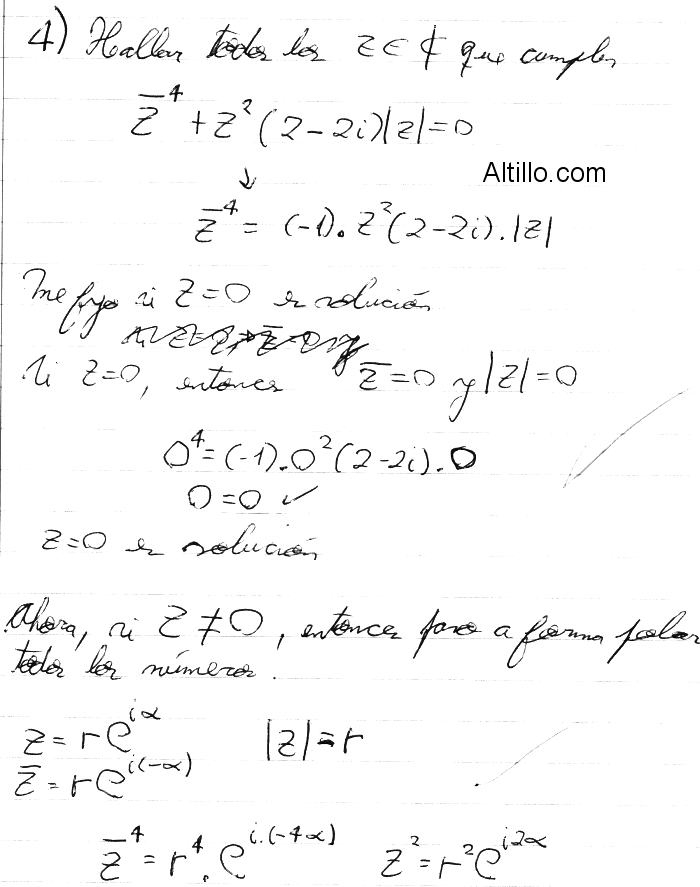 4) Hallar todos los z ∈ ₵ que cumplen
z̄⁴ + z²(2-2i)|z|=0
Altillo.com
↓
z̄⁴ = (-1).z²(2-2i).|z|
Me fijo si z=0 es solución
Si z=0, entonces z̄=0 y |z|=0
0⁴=(-1).0²(2-2i).0
0=0 ✓
z=0 es solución
Ahora, si z≠0, entonces paso a forma polar
todos los números.
z = r e^{iα} |z|=r
z̄ = r e^{i(-α)}
z̄⁴ = r⁴. e^{i.(-4α)} z²=r² e^{i2α}